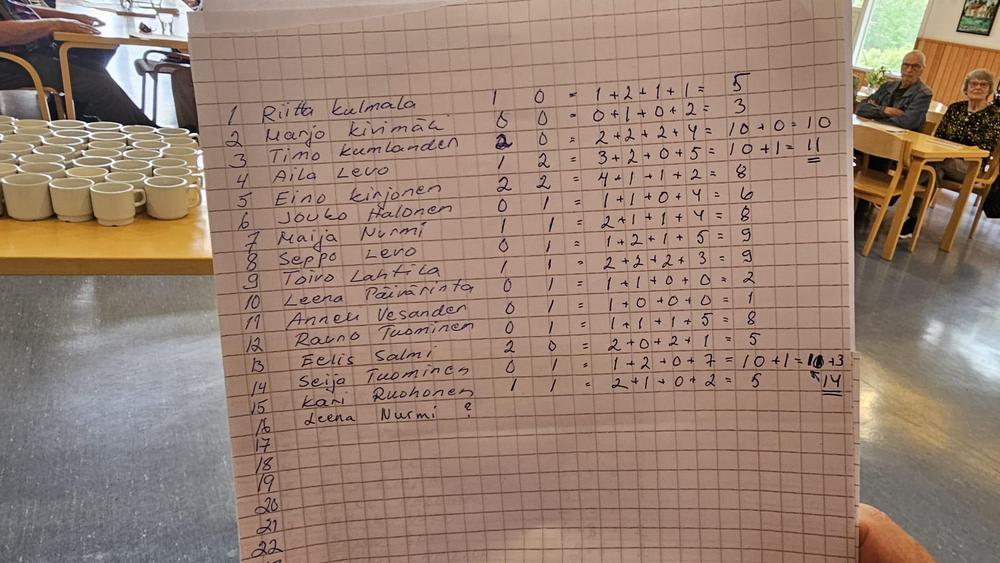 1 Riitta Kulmala 1 0 = 1+2+1+1= 5
2 Marjo Kivimäki 0 0 = 0+1+0+2= 3
3 Timo Kumlander 2 0 = 2+2+2+4= 10+0=10
4 Aila Levo 1 2 = 3+2+0+5= 10+1= 11
5 Eino Kirjonen 2 2 = 4+1+1+2= 8
6 Jouko Halonen 0 1 = 1+1+0+4= 6
7 Maija Nurmi 1 1 = 2+1+1+4= 8
8 Seppo Levo 0 1 = 1+2+1+5= 9
9 Toivo Lahtila 1 1 = 2+2+2+3= 9
10 Leena Päivärinta 0 1 = 1+1+0+0= 2
11 Anneli Vesander 0 1 = 1+0+0+0= 1
12 Rauno Tuominen 0 1 = 1+1+1+5= 8
13 Eelis Salmi 2 0 = 2+0+2+1= 5
14 Seija Tuominen 0 1 = 1+2+0+7= 10+1= +3
15 Kari Ruohonen 1 1 = 2+1+0+2= 5 14
16 Leena Nurmi ?
17
18
19
20
21
22